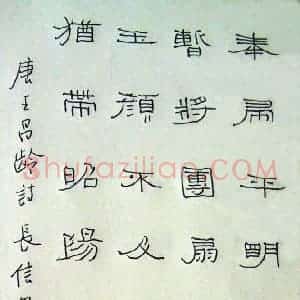 奉帚平明
暫將團扇
玉顏不及
猶帶昭陽
唐王昌齡詩長信
Shufaziliao.com